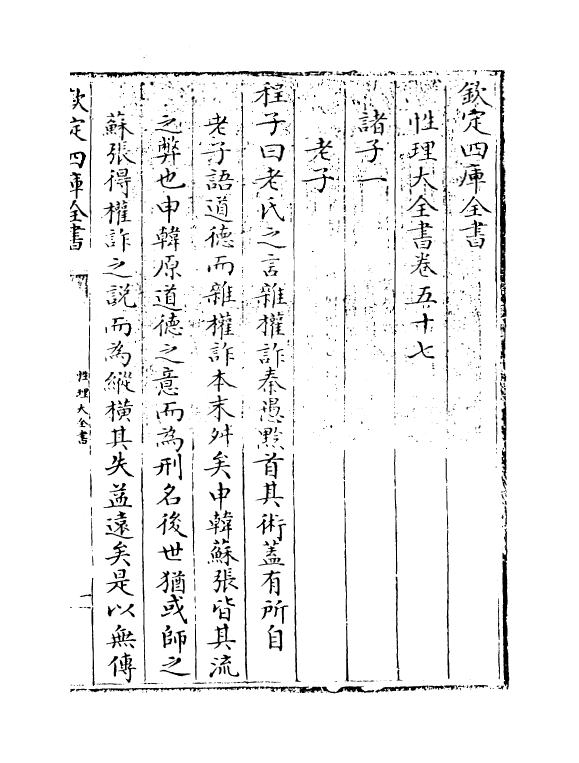 欽定四庫全書
性理大全書卷五十七
諸子一
老子
程子曰老氏之言雜權詐秦愚黔首其術蓋有所自
老子語道德而雜權詐本末舛矣申韓蘇張皆其流
之弊也申韓原道德之意而為刑名後世猶或師之
蘇張得權詐之說而為縱橫其失益遠矣是以無傳
欽定四庫全書
性理大全書
一